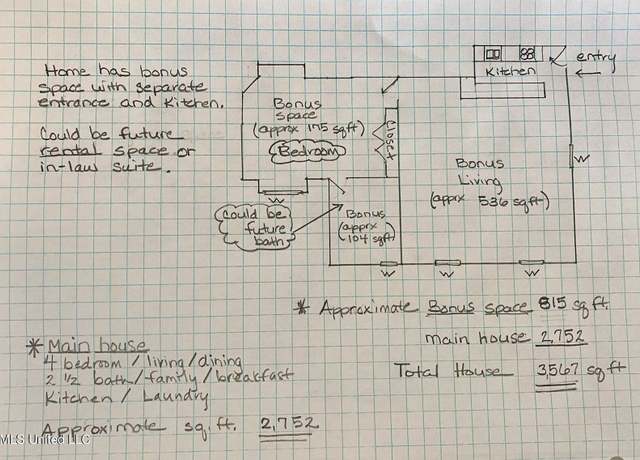 Home has bonus
space with separate
entrance and Kitchen.
Could be future
rental space or
in-law suite.
Bonus
Space
(approx 175 sqft)
Bedroom
Closet
Kitchen
entry
Bonus
Living
(apprx 536 sqft)
W
W
Could be
future
bath
Bonus
(apprx
104 sqft)
W
W
W
* Approximate Bonus space 815 sq ft.
main house 2,752
Total House 3,567 sq ft
* Main house
4 bedroom / living / dining
2 1/2 bath / family / breakfast
Kitchen / Laundry
Approximate sq. ft. 2,752
MLS United LLC